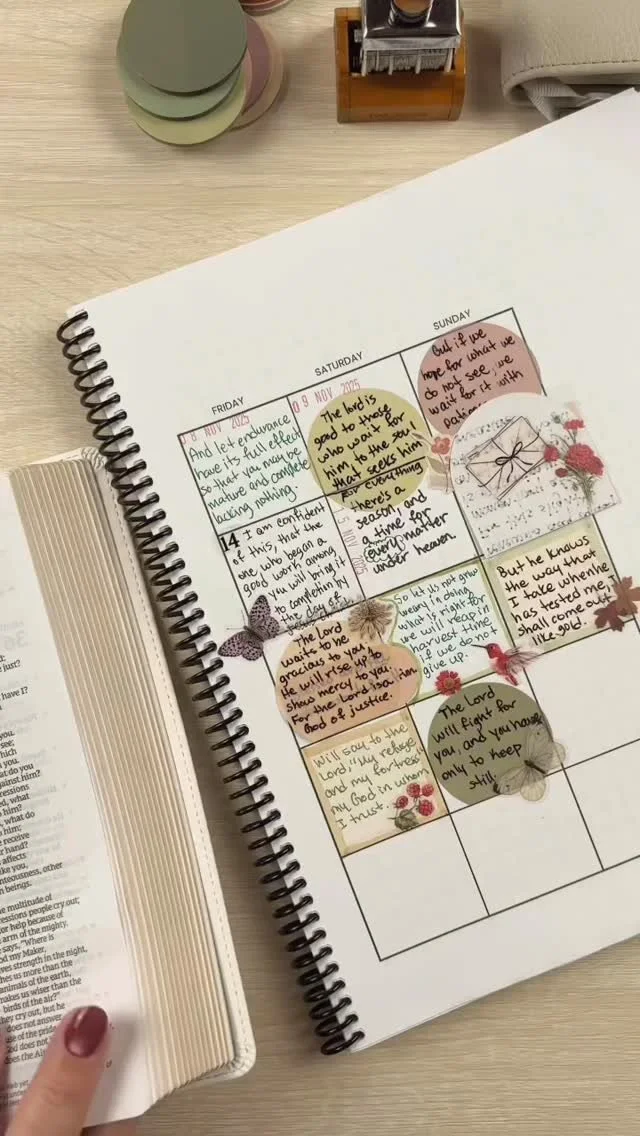 FRIDAY
SATURDAY
SUNDAY
8 NOV 2025
And let endurance
have its full effect
so that you may be
mature and complete
lacking nothing.
9 NOV 2025
The lord is
good to those
who wait for
him, to the soul
that seeks him
But if we
hope for what we
do not see, we
wait for it with
14
I am confident
of this, that the
one who began a
good work among
you will bring it
to completion by
the day of
For everything
there's a
season, and
a time for
every matter
under heaven.
NOV 2025
The Lord
waits to be
gracious to you
He will rise up to
show mercy to you.
For the Lord is a
God of justice.
So let us not grow
weary in doing
what is right for
we will reap in
harvest time
if we do not
give up.
But he knows
the way that
I take when he
has tested me, I
shall come out
like gold.
Will say to the
Lord, "My refuge
and my fortress"
my God in whom
I trust.
The Lord
will fight for
you, and you have
only to keep
still.
have I?
you.
see;
you.
do you
against him?
what do
him;
receive
hand?
affects
like you,
other
beings.
multitude of
people cry out;
for help because of
arm of the mighty.
says, "Where is
my Maker,
strength in the night,
us more than the
animals of the earth,
makes us wiser than the
birds of the air?"
they cry out, but he
does not answer,